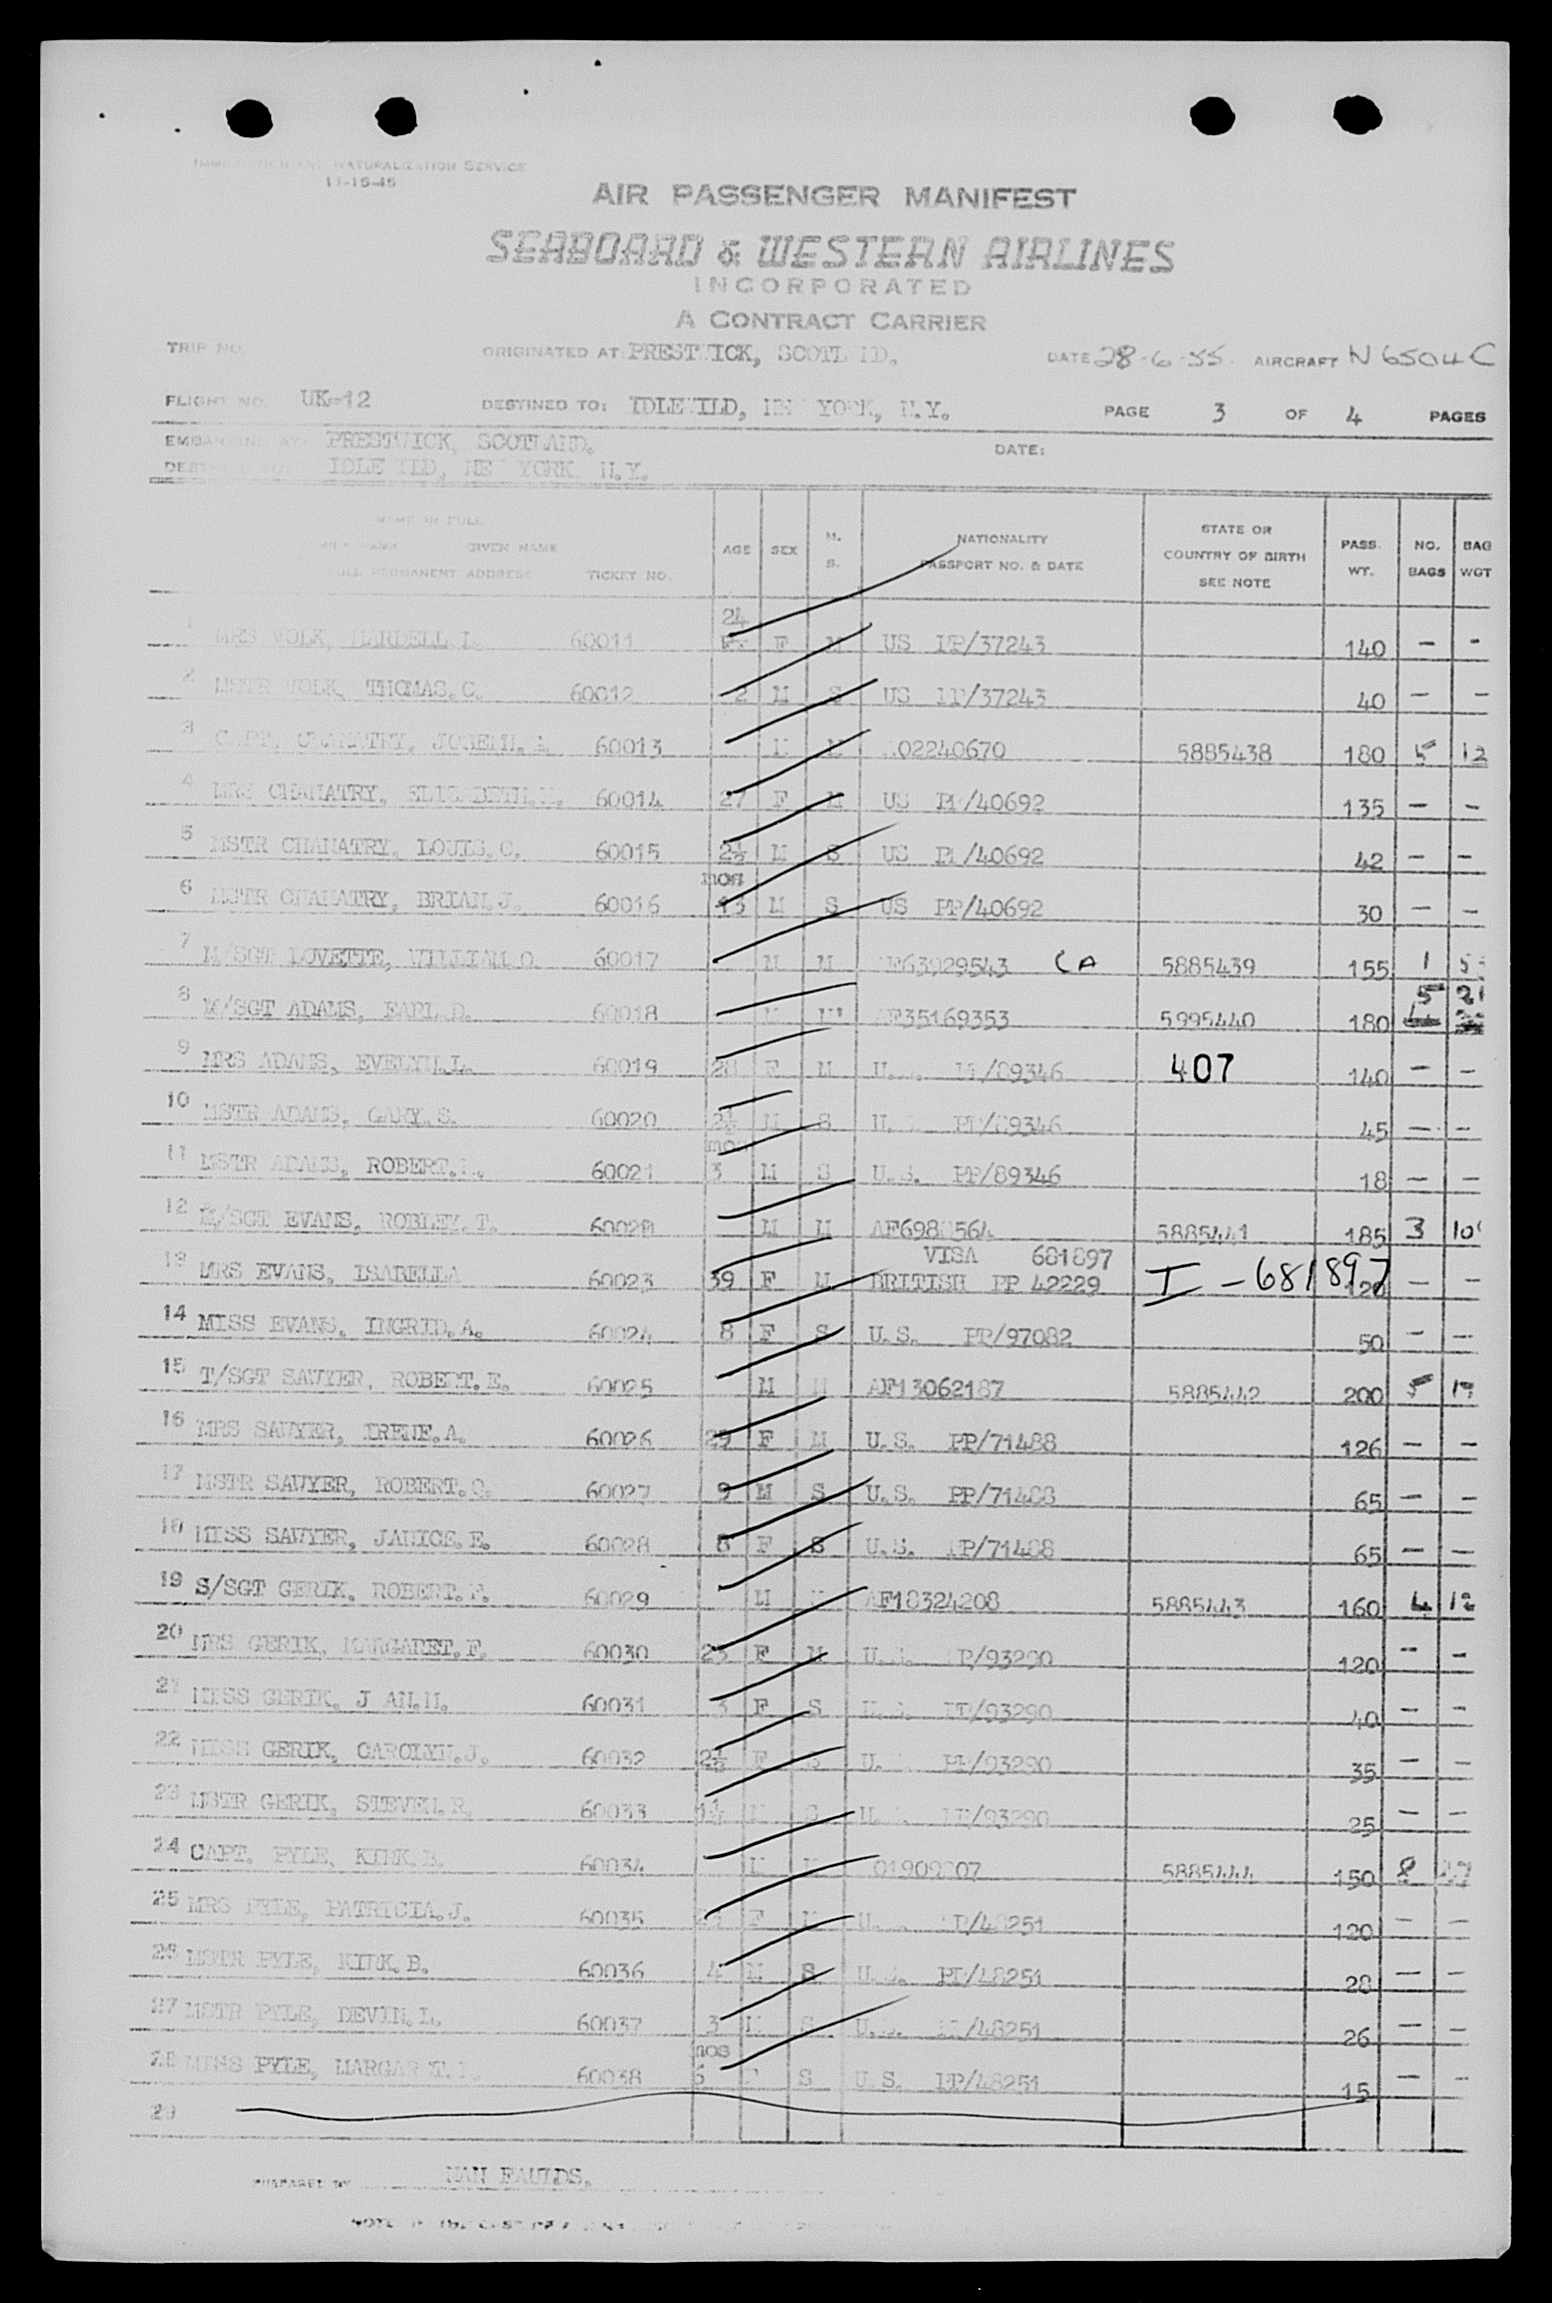 IMMIGRATION AND NATURALIZATION SERVICE
11-15-45
AIR PASSENGER MANIFEST
SEABOARD & WESTERN AIRLINES
INCORPORATED
A CONTRACT CARRIER
TRIP NO. ORIGINATED AT: PRESTWICK, SCOTLAND. DATE 28-6-55. AIRCRAFT N6504C
FLIGHT NO. UK-12 DESTINED TO: IDLEWILD, NEW YORK, N.Y. PAGE 3 OF 4 PAGES
EMBARKING AT: PRESTWICK, SCOTLAND. DATE:
IDLEWILD, NEW YORK N.Y.
NAME IN FULL
GIVEN NAME
FULL PERMANENT ADDRESS TICKET NO. AGE SEX M. S. NATIONALITY PASSPORT NO. & DATE STATE OR COUNTRY OF BIRTH SEE NOTE PASS. WT. NO. BAGS BAG WGT
1 MRS VOLK, MARDELL. 60011 24 F M US PP/37243 140 — —
2 MSTR VOLK, THOMAS.C. 60012 2 M S US PP/37243 40 — —
3 CAPT. CHAMATRY, JOSEPH. 60013 M M 02240670 5885438 180 5 12
4 MRS CHAMATRY, ELIZABETH. 60014 27 F M US PP/40692 135 — —
5 MSTR CHAMATRY, LOUIS.C. 60015 2½ M S US PP/40692 42 — —
6 MSTR CHAMATRY, BRIAN.J. 60016 mos 13 M S US PP/40692 30 — —
7 M/SGT LOVETTE, WILLIAM.O. 60017 M M AF63929543 CA 5885439 155 1 5
8 M/SGT ADAMS, EARL.D. 60018 M M AF35169353 5995440 180 5 21
9 MRS ADAMS, EVELYN.L. 60019 28 F M U.S. PP/89346 407 140 — —
10 MSTR ADAMS, GARY.S. 60020 2½ M S U.S. PP/89346 45 — —
11 MSTR ADAMS, ROBERT. 60021 mos 3 M S U.S. PP/89346 18 — —
12 M/SGT EVANS, ROBLEY.T. 6002 M M AF698 564 5885441 185 3 10
13 MRS EVANS, ISABELLA 60023 39 F M VISA 681897
BRITISH PP 42229 I – 681897 120 — —
14 MISS EVANS, INGRID.A. 60024 8 F S U.S. PP/97082 50 — —
15 T/SGT SAWYER, ROBERT.E. 60025 M M AF13062187 5885442 200 5 17
16 MRS SAWYER, IRENE.A. 60026 29 F M U.S. PP/71488 126 — —
17 MSTR SAWYER, ROBERT. 60027 9 M S U.S. PP/71488 65 — —
18 MISS SAWYER, JANICE.E. 60028 8 F S U.S. PP/71488 65 — —
19 S/SGT GERIK, ROBERT.F. 60029 M M AF18324208 5885443 160 4 12
20 MRS GERIK, MARGARET.F. 60030 23 F M U.S. PP/93290 120 — —
21 MISS GERIK, J AN.M. 60031 3 F S U.S. PP/93290 40 — —
22 MISS GERIK, CAROLYN.J. 60032 2½ F S U.S. PP/93290 35 — —
23 MSTR GERIK, STEVEN.R. 60033 1¼ M S U.S. PP/93290 25 — —
24 CAPT. PYLE, KIRK.B. 60034 M M 01909207 5885444 150 8
25 MRS PYLE, PATRICIA.J. 60035 F M U.S. PP/48251 120 — —
26 MSTR PYLE, KIRK.B. 60036 4 M S U.S. PP/48251 28 — —
27 MSTR PYLE, DEVIN.L. 60037 3 M S U.S. PP/48251 26 — —
28 MISS PYLE, MARGARET. 60038 mos 6 F S U.S. PP/48251 15 — —
29
PREPARED BY NAN FAULDS.